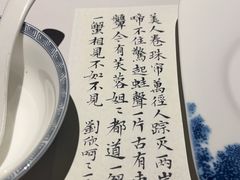 美人卷珠帘萬徑人踪灭两岸
啼不住驚起蛙聲一片古有
顰今有芙蓉姐〻都道
一蟹相見不如不見
劉欣呵〻